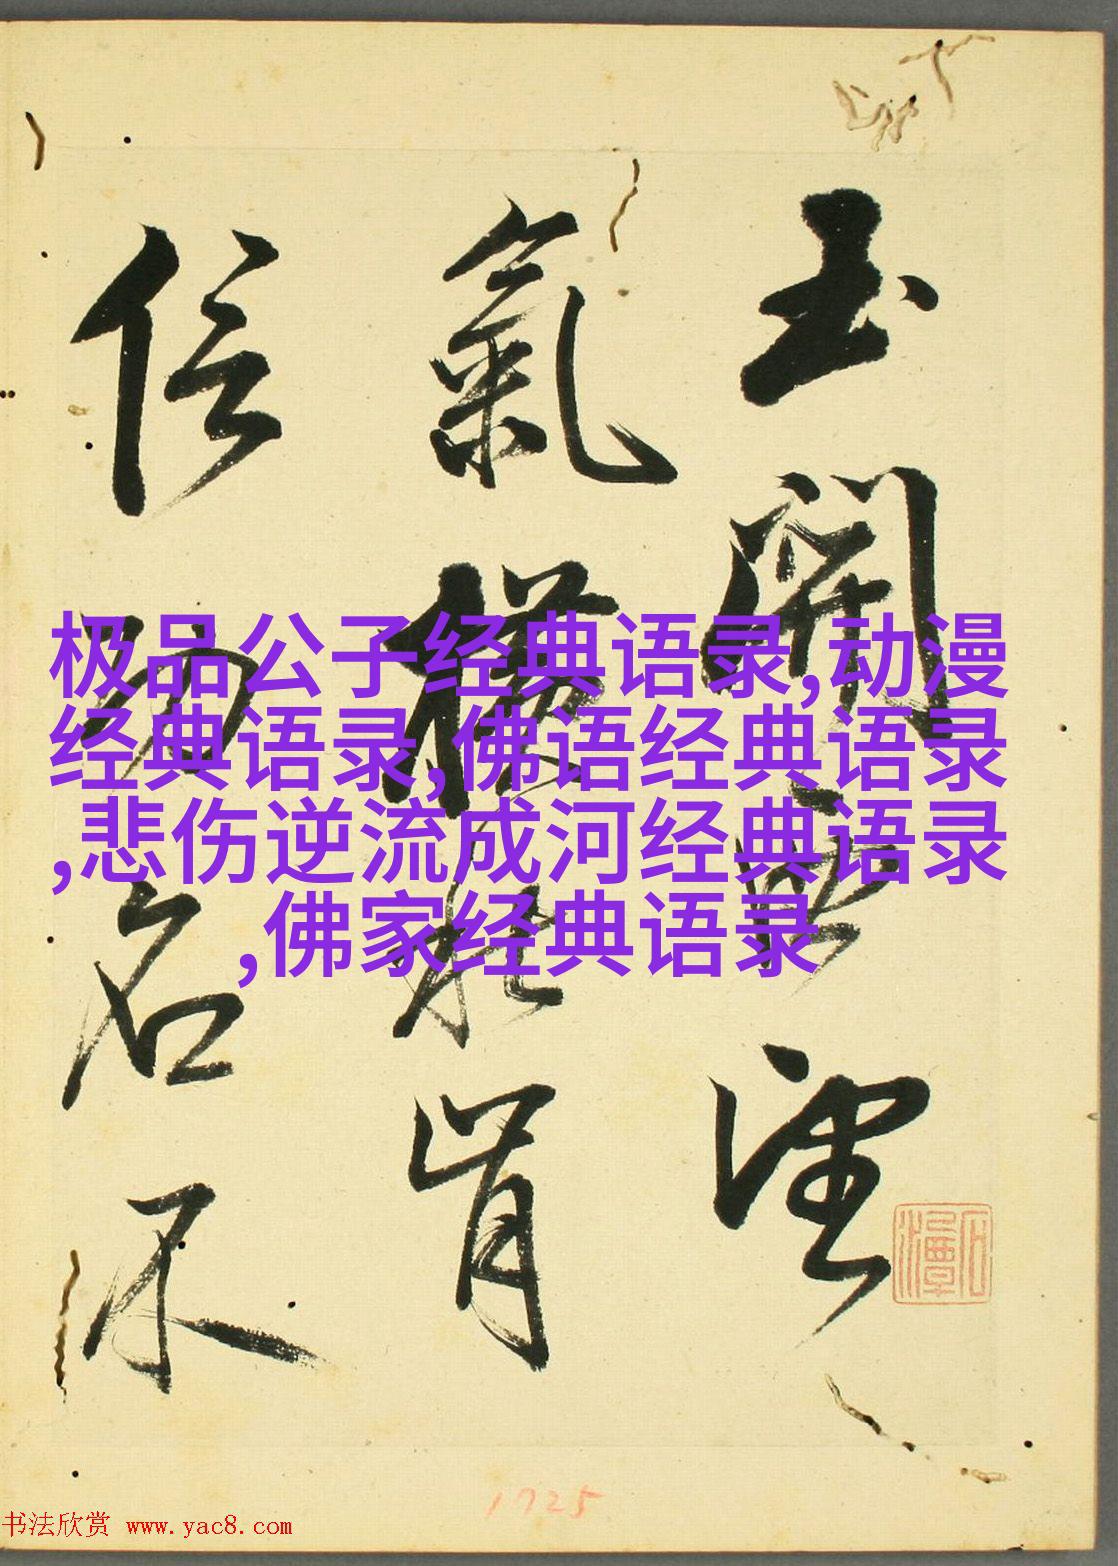 极品公子经典语录,动漫
经典语录,佛语经典语录
,悲伤逆流成河经典语录
,佛家经典语录
玉關望
氣橫秋肯
信功名不
石潭
1725
书法欣赏 www.yac8.com